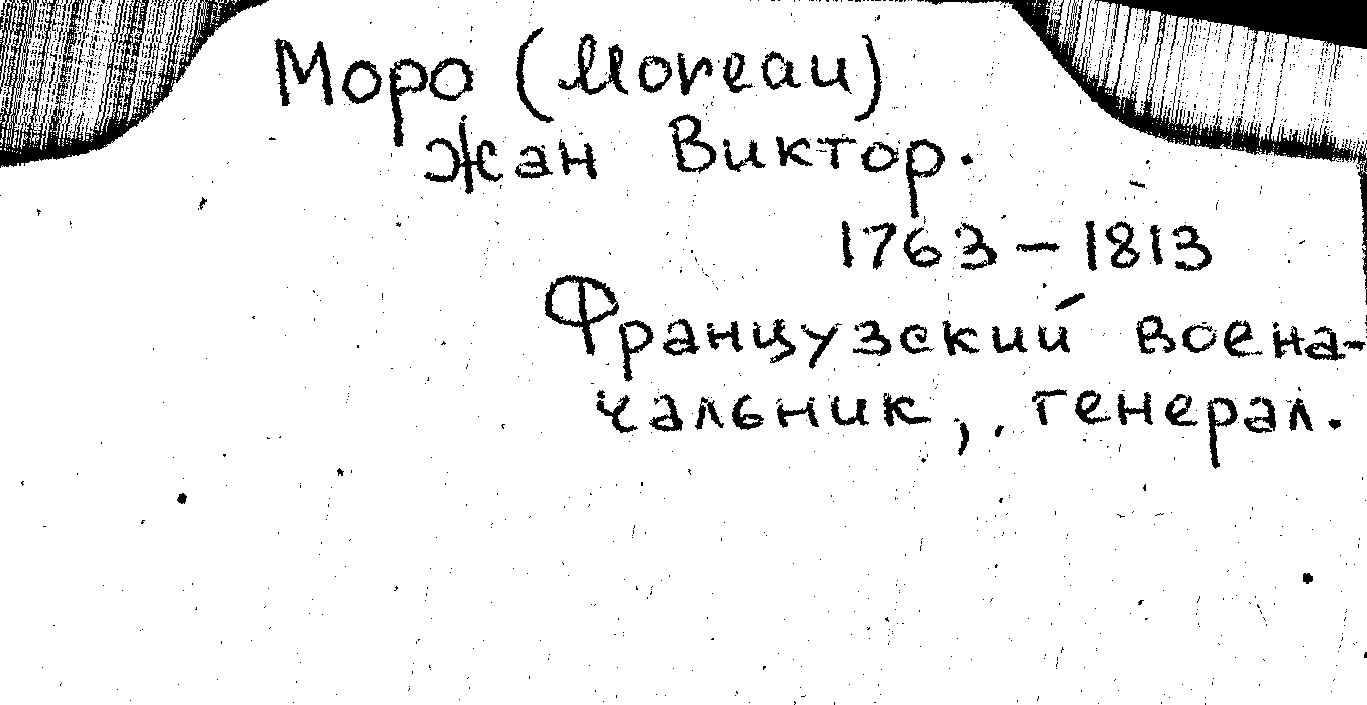 Моро (Moreau)
Жан Виктор.
1763 – 1813
Французский воена-
чальник, генерал.